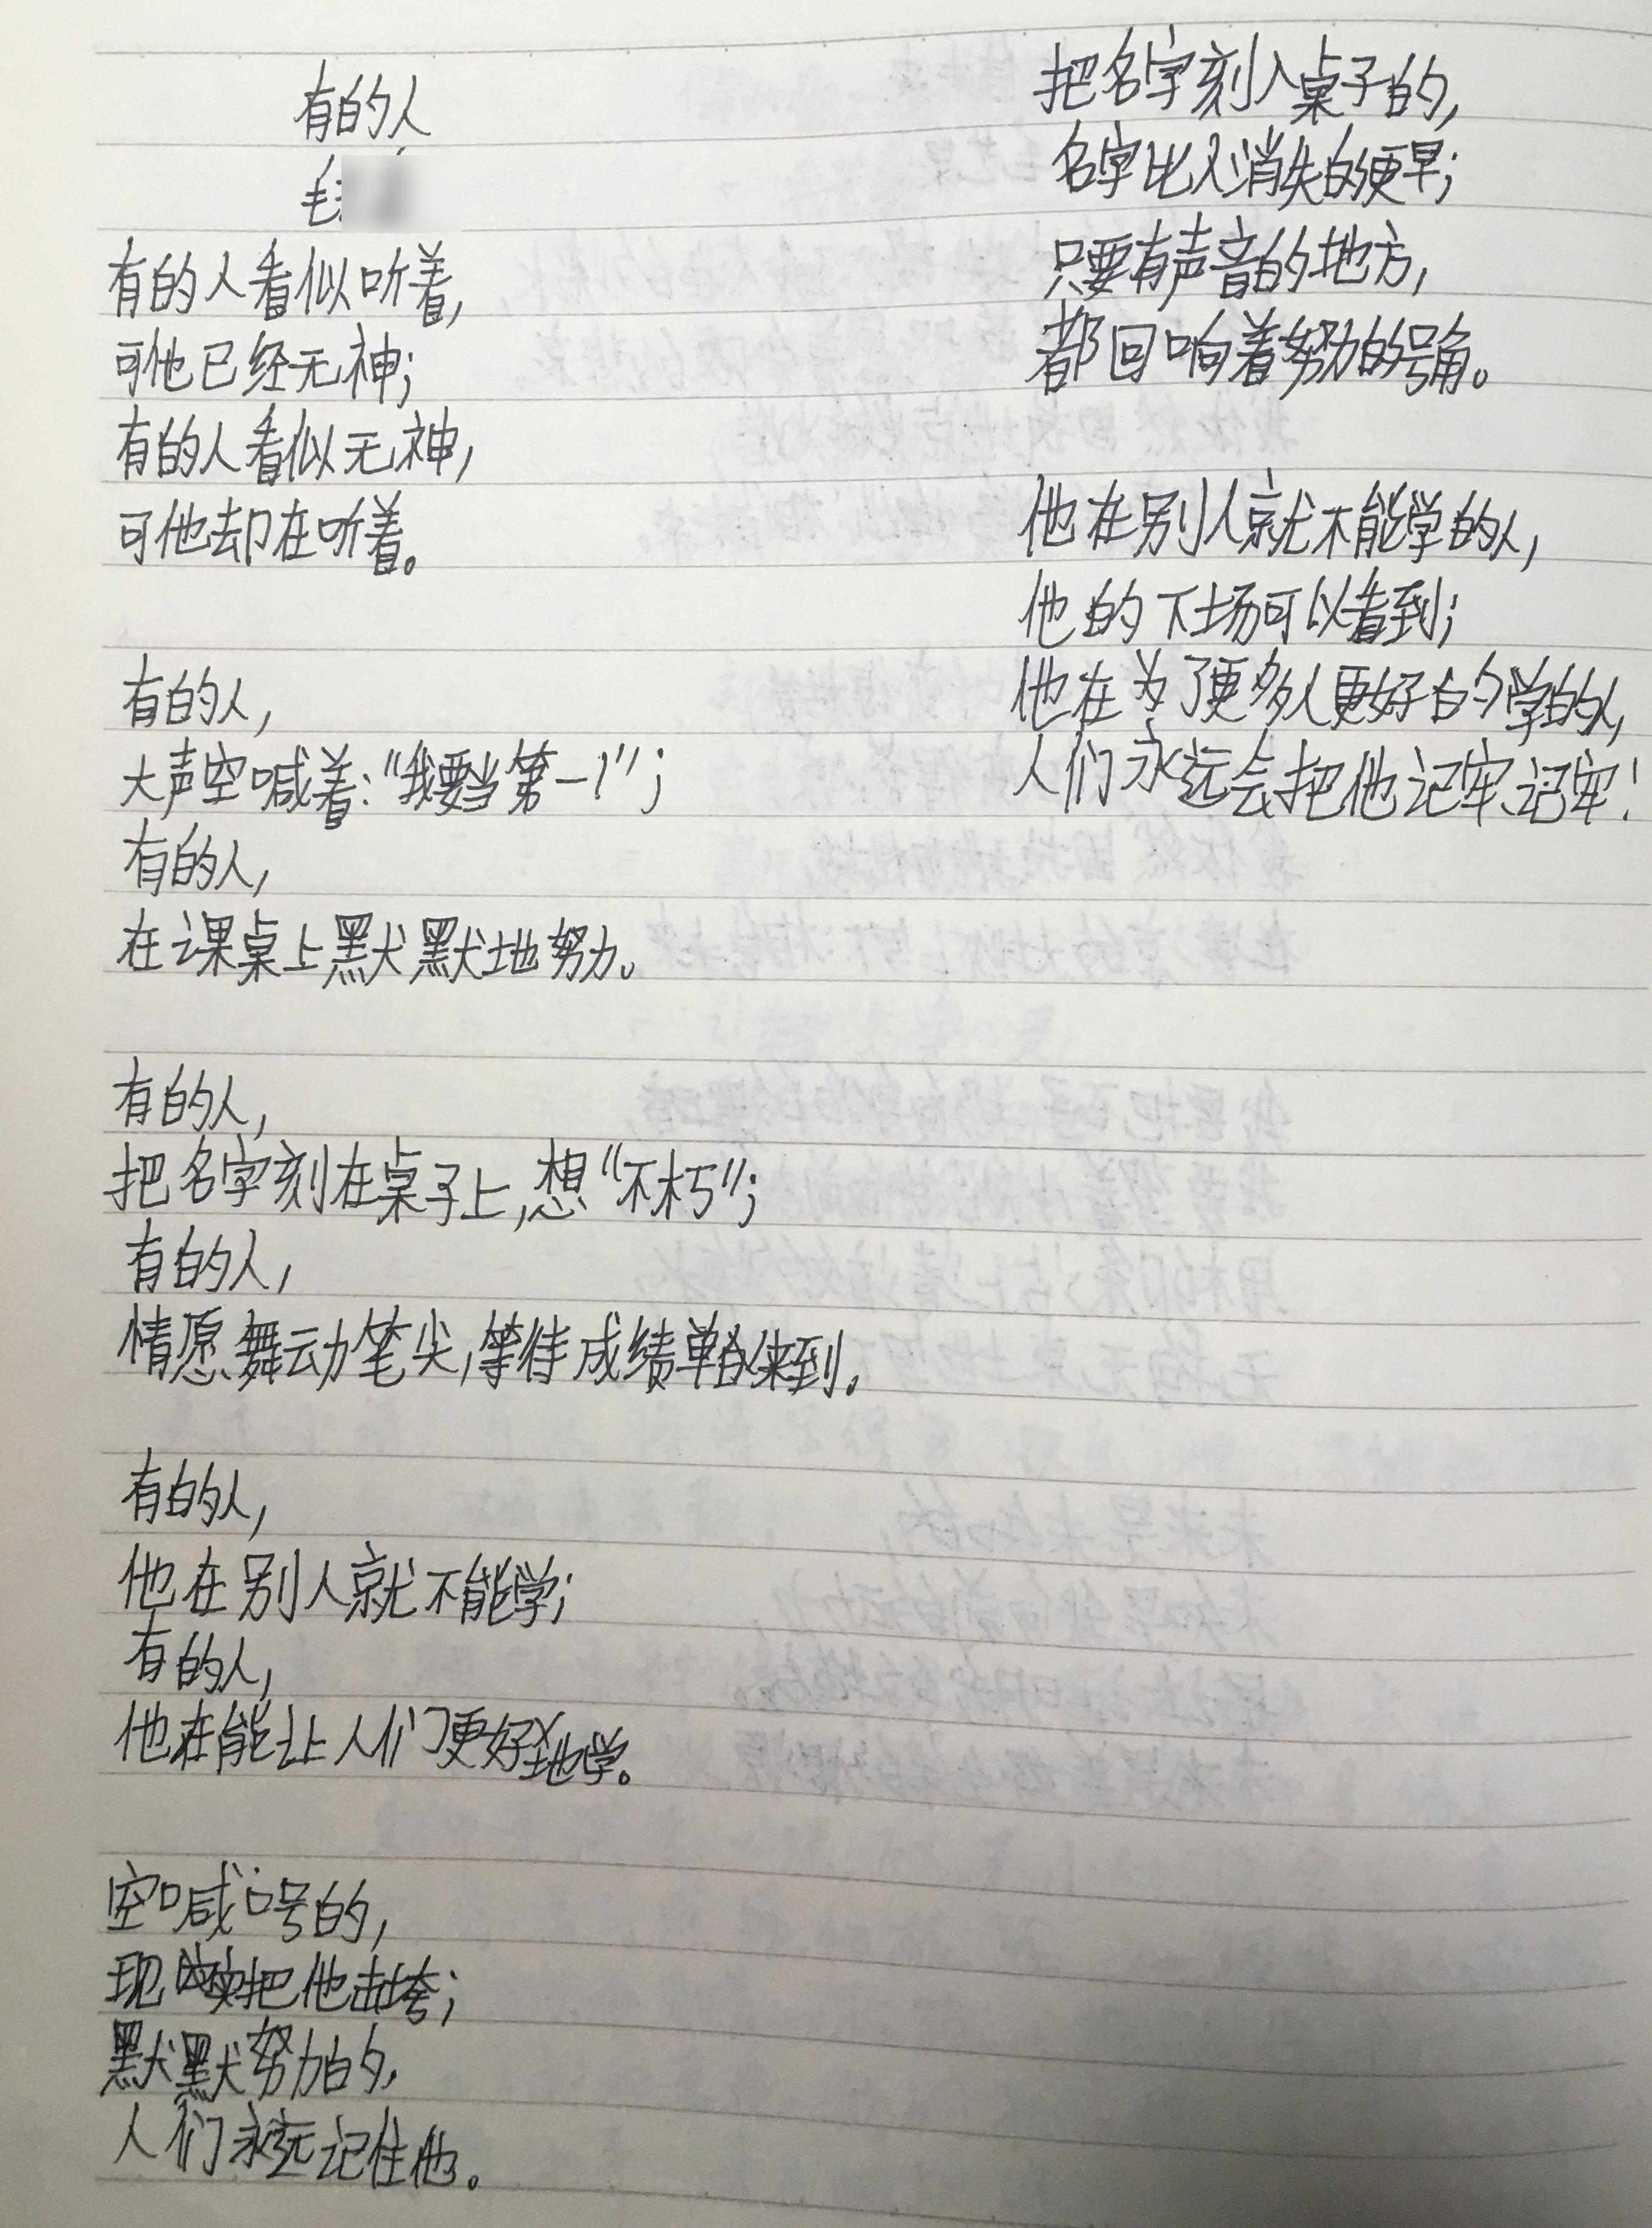 有的人
毛
有的人看似听着,
可他已经无神;
有的人看似无神,
可他却在听着。
有的人,
大声空喊着:“我要当第一!”;
有的人,
在课桌上默默地努力。
有的人,
把名字刻在桌子上,想“不朽”;
有的人,
情愿舞动笔尖,等待成绩单的来到。
有的人,
他在别人就不能学;
有的人,
他在能让人们更好地学。
空喊口号的,
现实把他击垮;
默默努力的,
人们永远记住他。
把名字刻入桌子的,
名字比人消失的更早;
只要有声音的地方,
都回响着努力的号角。
他在别人就不能学的人,
他的下场可以看到;
他在为了更多人更好的学的人,
人们永远会把他记牢、记牢!